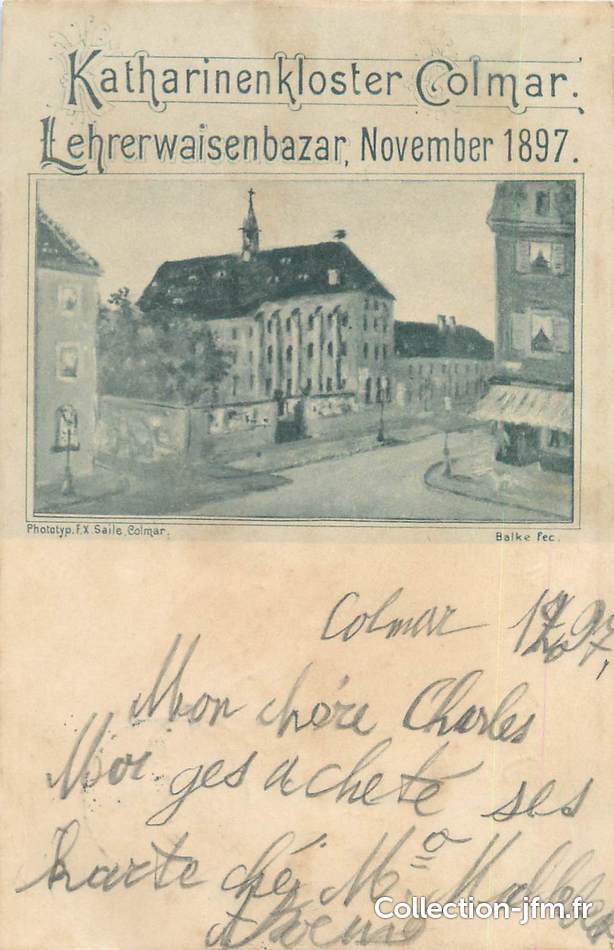 Katharinenkloster Colmar.
Lehrerwaisenbazar, November 1897.
Phototyp. F.X. Saile, Colmar.
Balke fec.
Colmar
Mon chére Charles
Moi ges acheté ses
karte ché M
Collection-jfm.fr